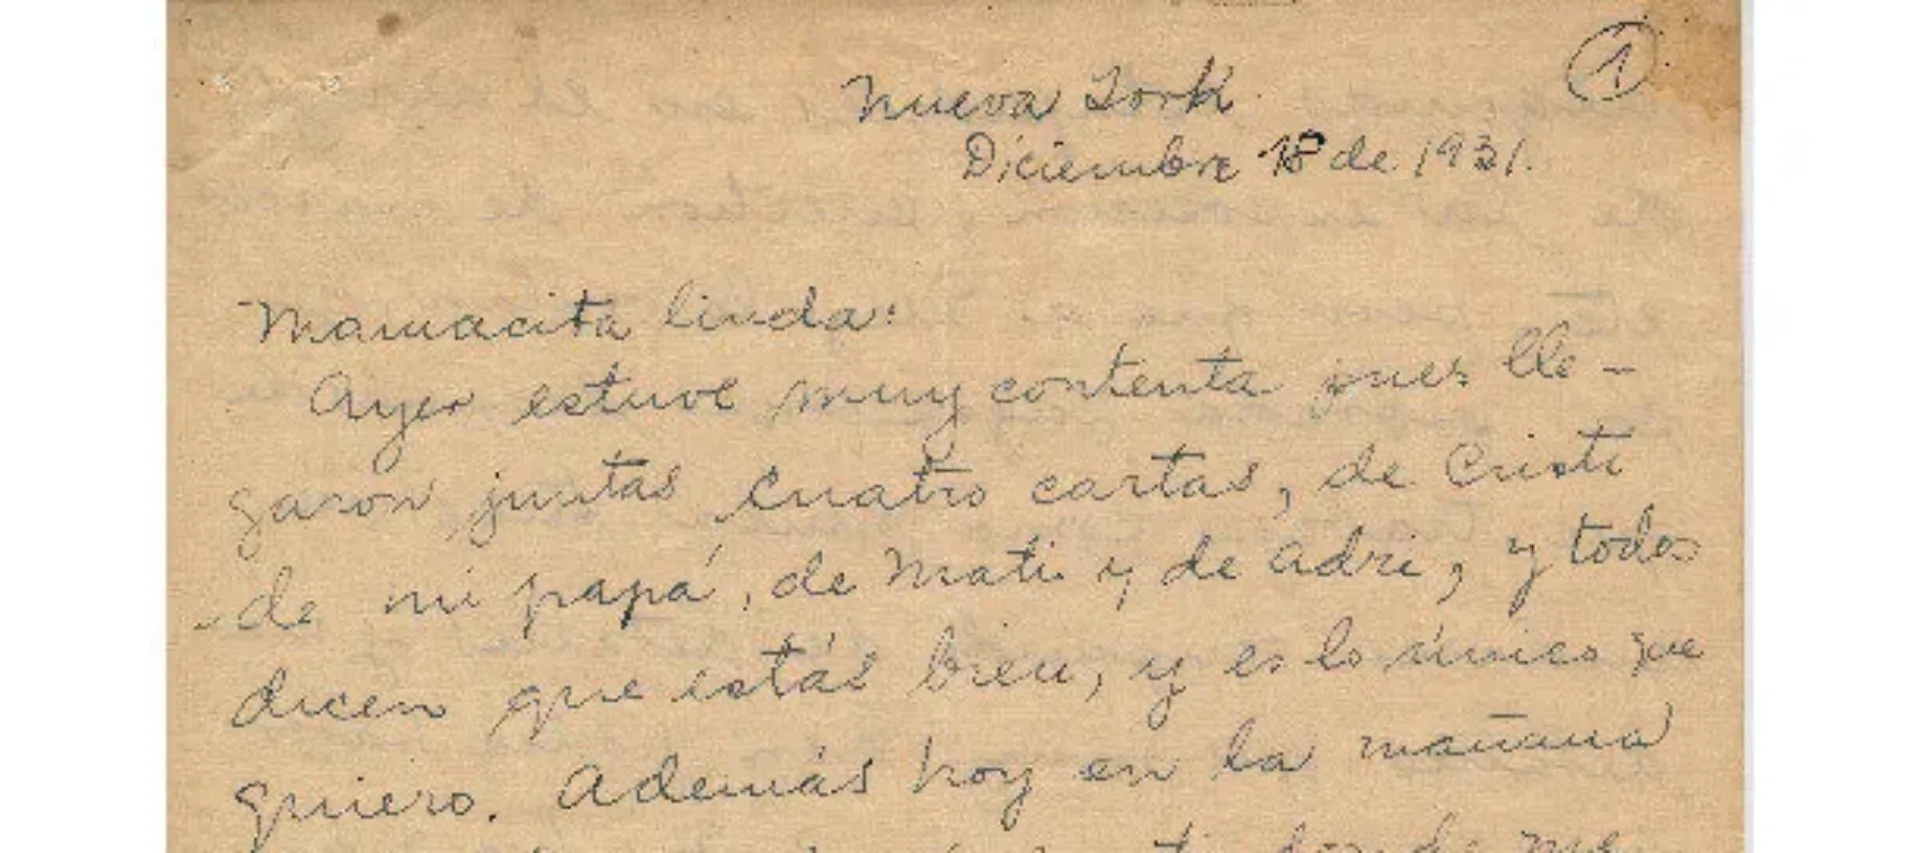 1
Nueva York
Diciembre 18 de 1931.
Mamacita linda:
Ayer estuve muy contenta pues lle-
garon juntas cuatro cartas, de Cristi
de mi papá, de Mati y de Adri, y todos
dicen que estás bien, y es lo único que
quiero. Además hoy en la mañana